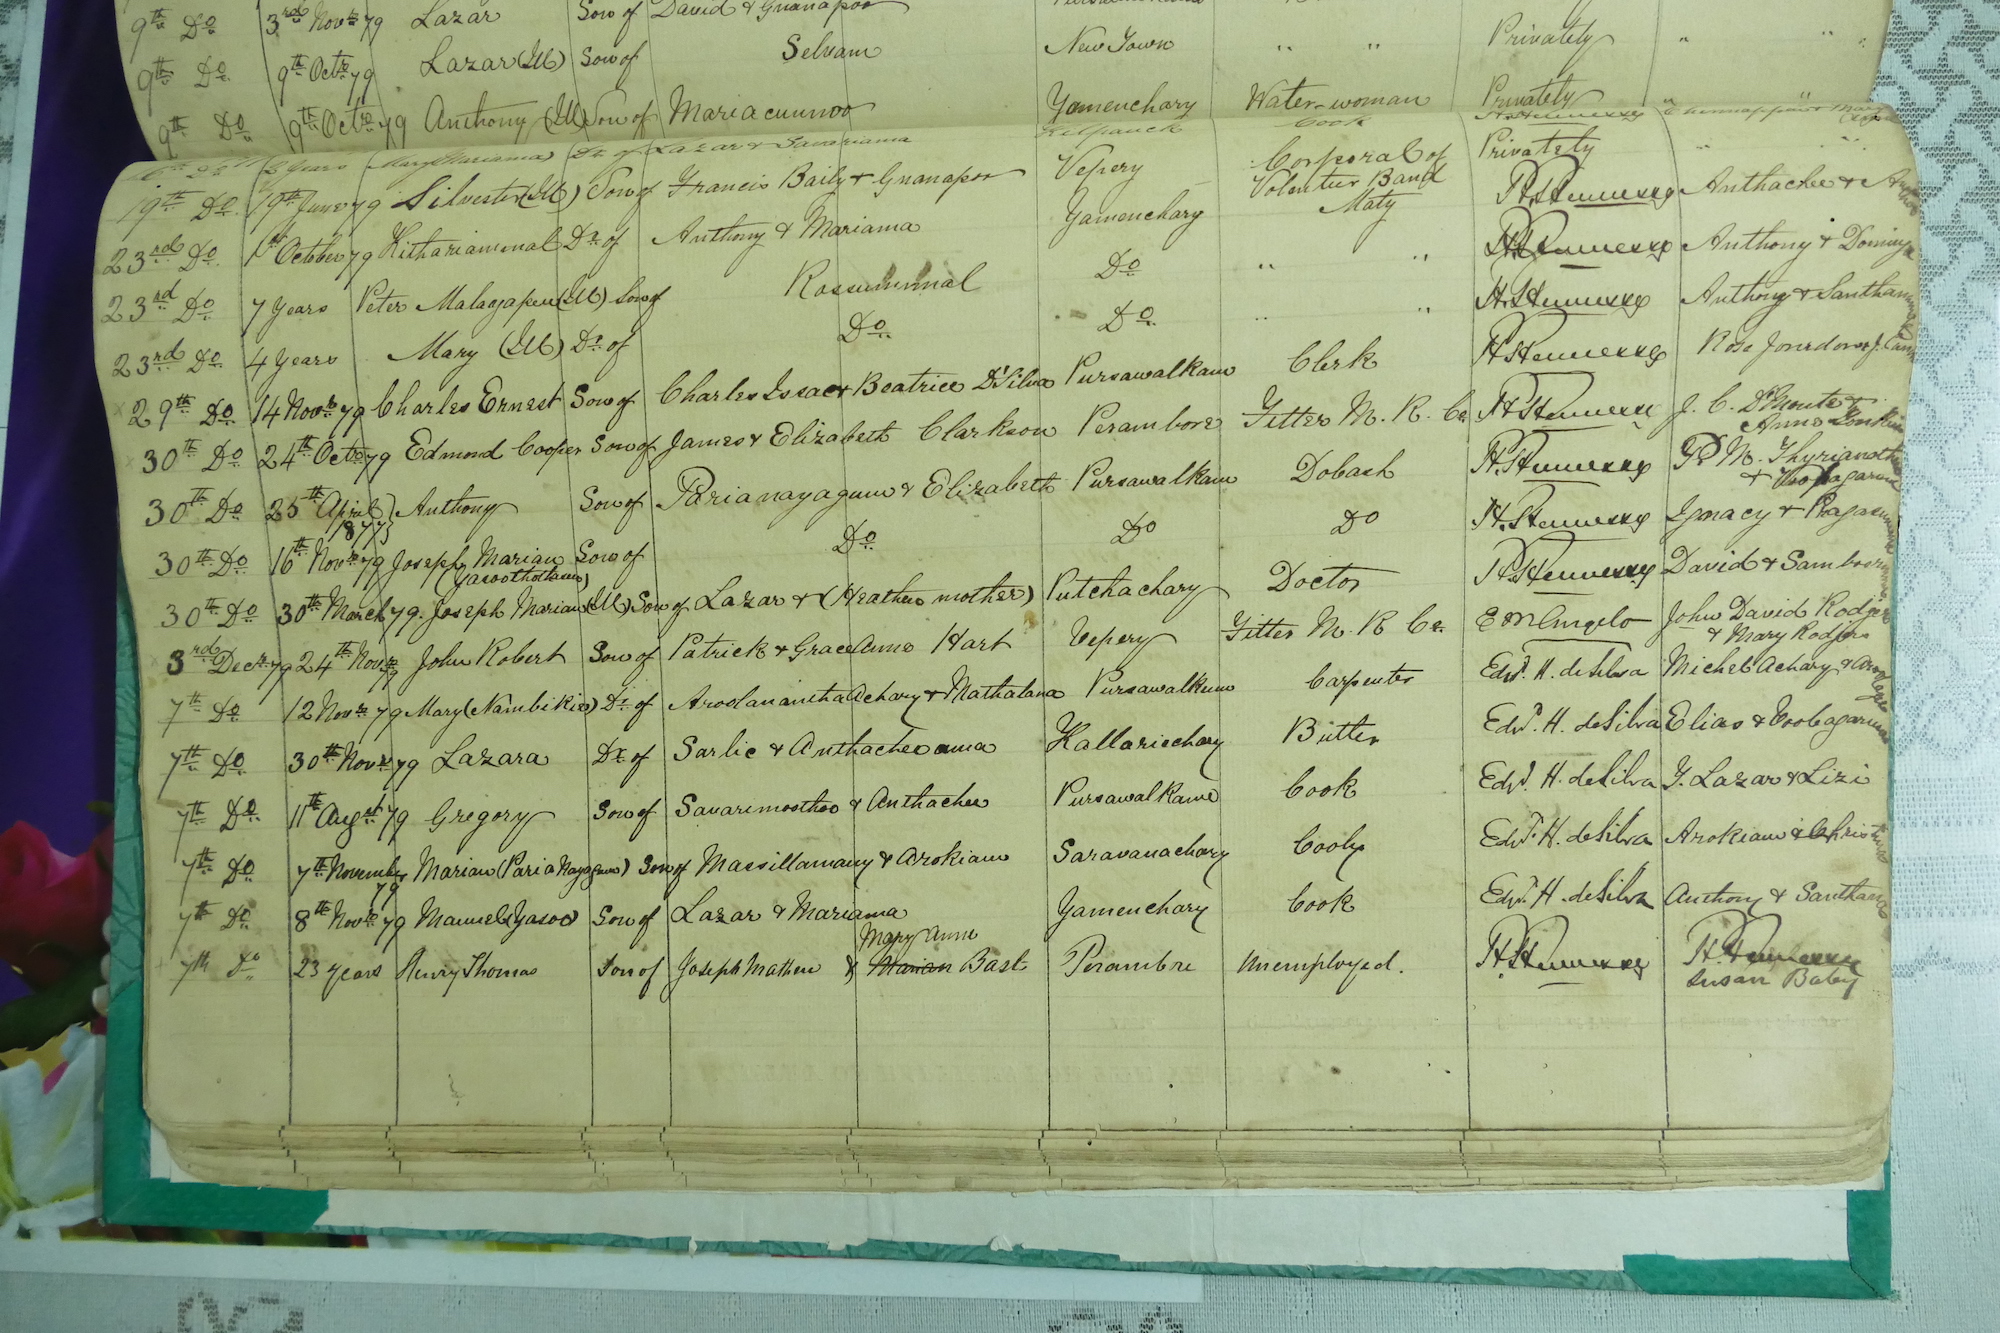 9th Do 3rd Novr 79 Lazar Son of David & Gnanapoo
9th Do 9th Octr 79 Lazar (Ill) Son of Selvam New Town " " Privately " " "
9th Do 9th Octr 79 Anthony (Ill) Son of Mariacunnoo Yamenchary Water-woman Privately
2 Years Mary (Mariama) Dr of Lazar & Savariama Kilpauck Cook
19th Do 19th June 79 Silvester (Ill) Son of Francis Baily & Gnanapoo Vepery Corporal of Voluntur Band Privately " "
23rd Do 1st October 79 Kithariammal Dr of Anthony & Mariama Yamenchary Maty H. Hennessy Anthachee &
23rd Do 7 Years Peter Malagapen (Ill) Son of Rosummal Do " " H. Hennessy Anthony &
23rd Do 4 Years Mary (Ill) Dr of Do Do " " H. Hennessy Anthony &
29th Do 14 Novr 79 Charles Ernest Son of Charles Issac & Beatrice D'Silva Pursawalkam Clerk H. Hennessy Rose
30th Do 24th Octr 79 Edmond Cooper Son of James & Elizabeth Clarkson Perambore Fitter M. R. Co. H. Hennessy J. C. D'Monte &
Anne
30th Do 25th April 1877 Anthony Son of Parianayagum & Elizabeth Pursawalkam Dobash H. Hennessy P. M.
&
30th Do 16th Novr 79 Joseph Marian Son of Do Do Do H. Hennessy Ignacy &
(Yasoothothasen)
30th Do 30th March 79. Joseph Marian (Ill) Son of Lazar & (Heathen mother) Putchachary Doctor H. Hennessy David &
3rd Decr 79 24th Novr 79 John Robert Son of Patrick & Grace Anne Hart Vepery Fitter M. R Co. E M Angelo John David Rodgers
& Mary Rodgers
7th Do 12 Novr 79 Mary (Nambikie) Dr of Aroolanantha Achary & Mathalana Pursawalkum Carpenter Edw. H. de Silva Michel Achary &
7th Do 30th Novr 79 Lazara Dr of Sarlie & Anthacheeama Kallariechary Buttler Edw. H. de Silva Elias &
7th Do 11th Augst 79 Gregory Son of Savarimoothoo & Anthachee Pursawalkame Cook Edw. H. de Silva Y. Lazar & Lizi
7th Do 7th November 79 Marian (Paria Nayagum) Son of Massillamany & Arokiam Saravanachary Cooly Edw. H. de Silva Arokiam &
7th Do 8th Novr 79 Manuel (Yasoo) Son of Lazar & Mariama Yamenchary Cook Edw. H. de Silva Anthony &
Mary Anne
7th Do 23 years Henry Thomas Son of Joseph Mathew & Marian Bast Perambre Unemployed. H. Hennessy H. Hennessy
Susan Baby